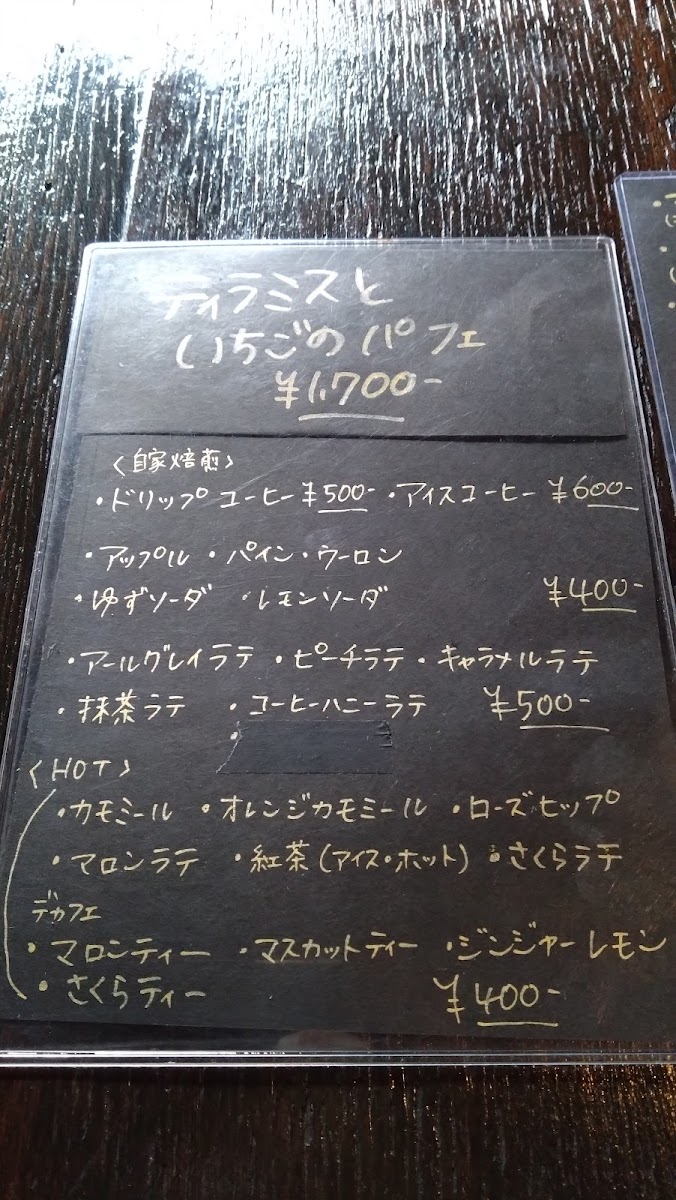 ティラミスと
いちごのパフェ
¥1,700-
〈自家焙煎〉
・ドリップコーヒー ¥500- ・アイスコーヒー ¥600-
・アップル ・パイン・ウーロン
・ゆずソーダ ・レモンソーダ ¥400-
・アールグレイラテ ・ピーチラテ ・キャラメルラテ
・抹茶ラテ ・コーヒーハニーラテ ¥500-
〈HOT〉
・カモミール ・オレンジカモミール ・ローズヒップ
・マロンラテ ・紅茶(アイス・ホット) ・さくらラテ
デカフェ
・マロンティー ・マスカットティー ・ジンジャーレモン
・さくらティー ¥400-